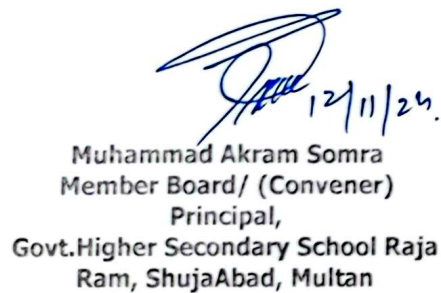 12/11/24.
Muhammad Akram Somra
Member Board/ (Convener)
Principal,
Govt.Higher Secondary School Raja
Ram, ShujaAbad, Multan